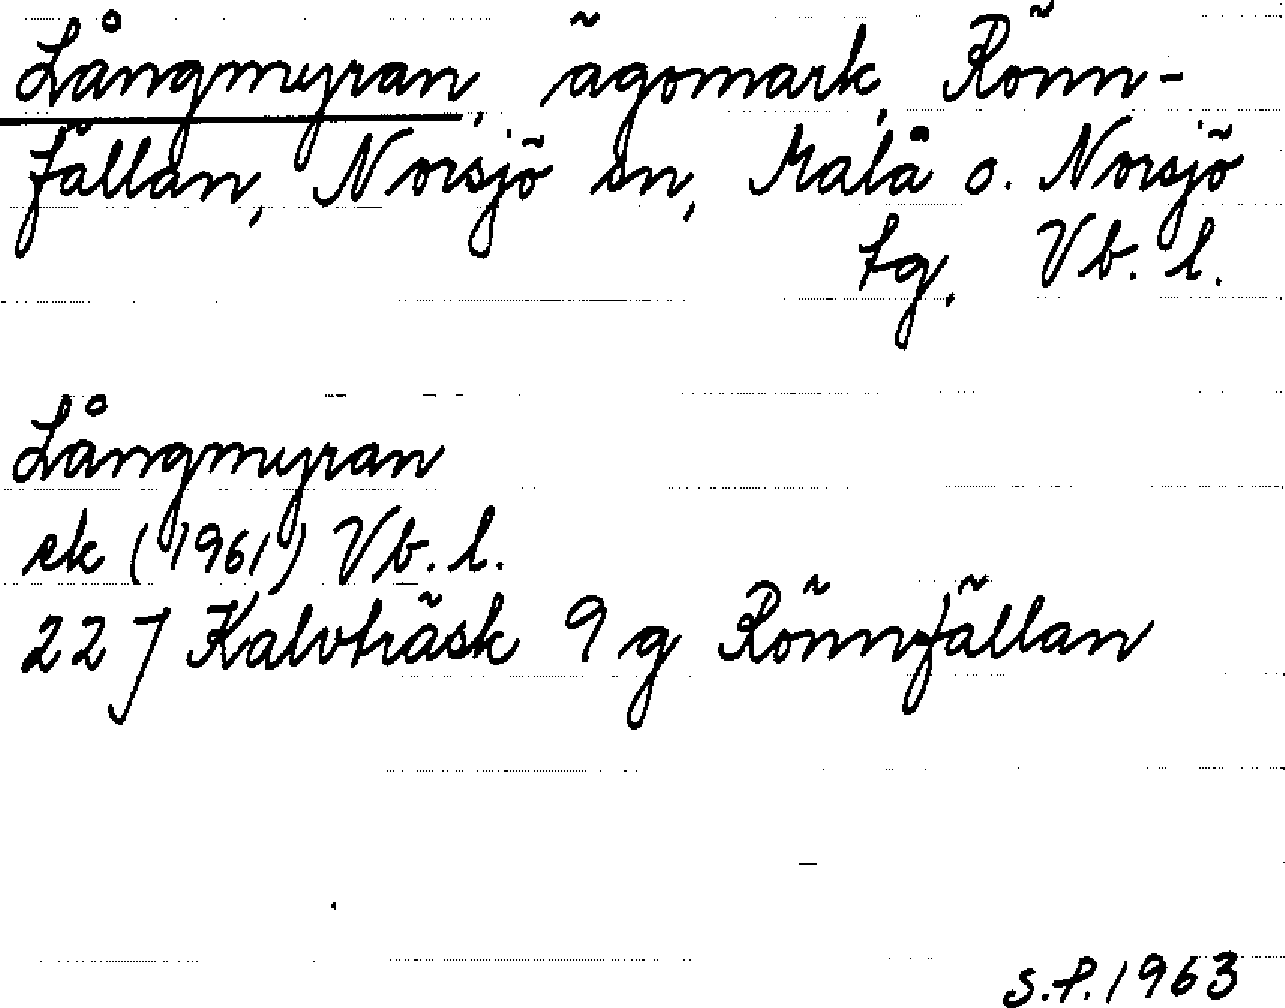 Långmyran, ägomark, Rönn-
fällan, Norsjö sn, Malå o. Norsjö
tg. Vb. l.
Långmyran
ek (1961) Vb. l.
22 J Kalvträsk 9 g Rönnfällan
S.P. 1963